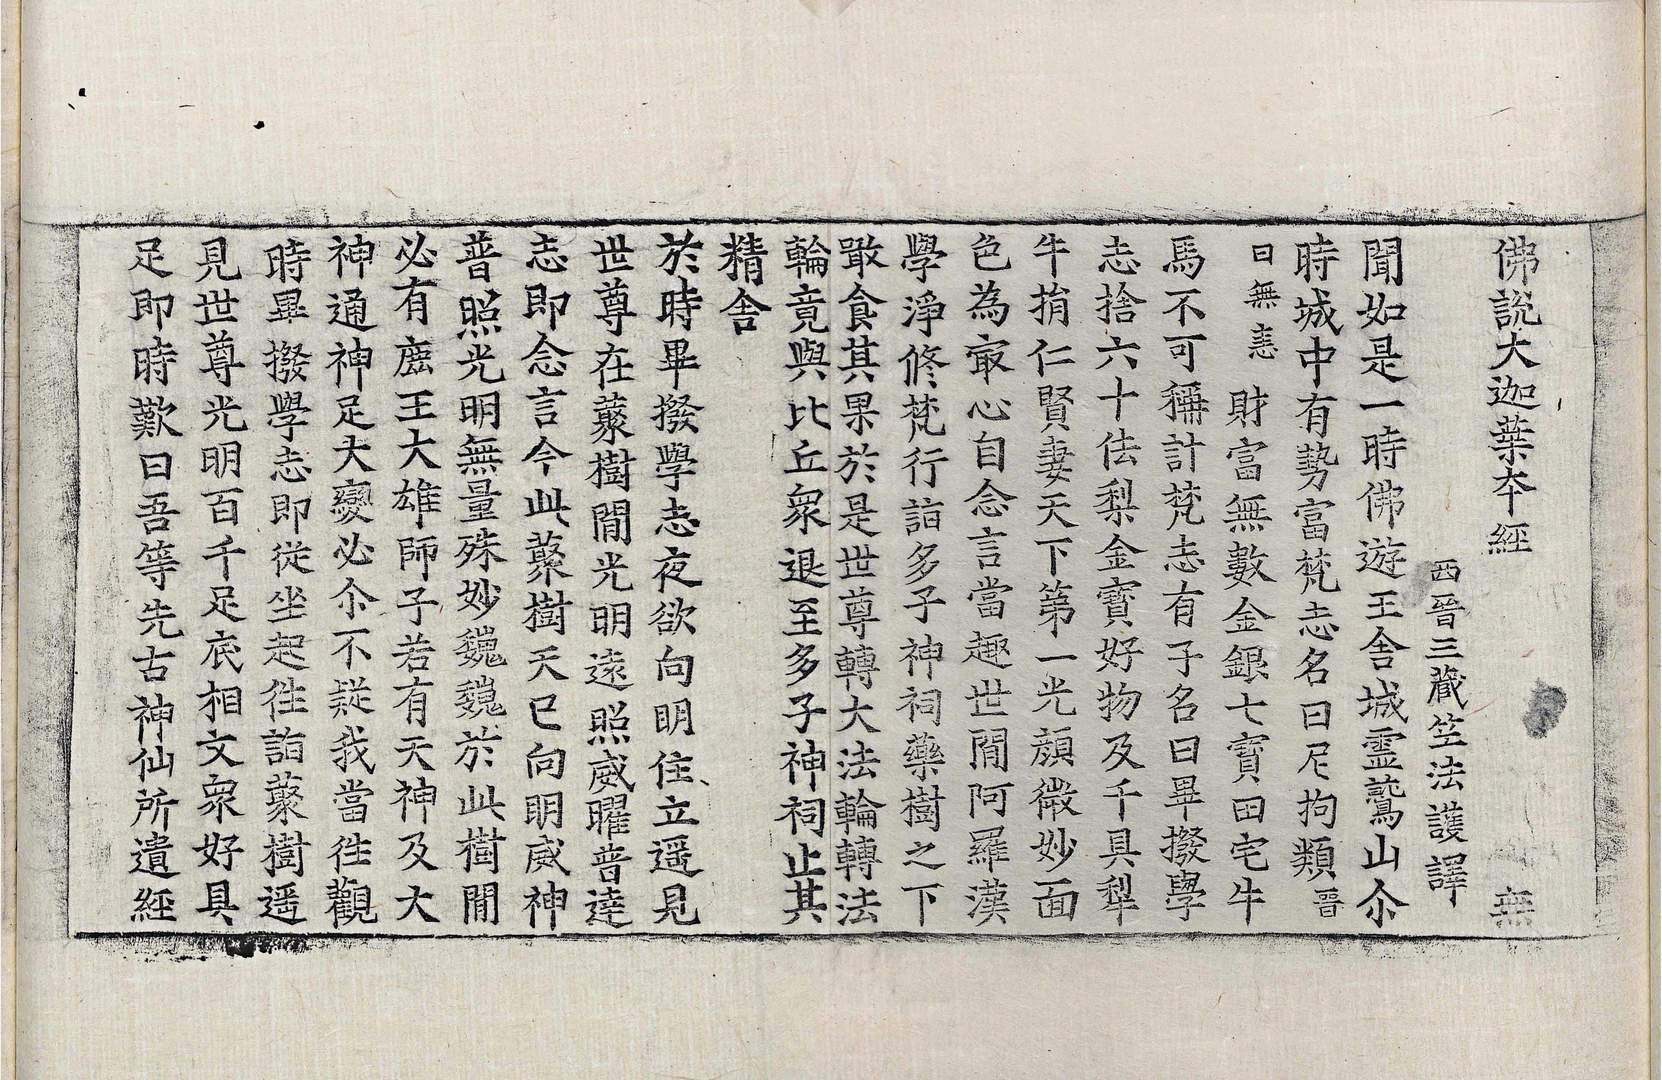 佛說大迦葉本經 無
西晉三藏竺法護譯
聞如是一時佛遊王舍城靈鷲山尒
時城中有勢富梵志名曰尼拘類晉
曰無恚財富無數金銀七寶田宅牛
馬不可稱計梵志有子名曰畢撥學
志捨六十佉梨金寶好物及千具犁
牛捐仁賢妻天下第一光顏微妙面
色為㝡心自念言當趣世閒阿羅漢
學淨修梵行詣多子神祠藥樹之下
噉食其果於是世尊轉大法輪轉法
輪竟與比丘衆退至多子神祠止其
精舍
於時畢撥學志夜欲向明住立遥見
世尊在藂樹閒光明遠照威曜普達
志即念言今此藂樹天已向明威神
普照光明無量殊妙巍巍於此樹閒
必有鹿王大雄師子若有天神及大
神通神足夫變必尒不疑我當往觀
時畢撥學志即從坐起往詣藂樹遥
見世尊光明百千足底相文衆好具
足即時歎曰吾等先古神仙所遺經